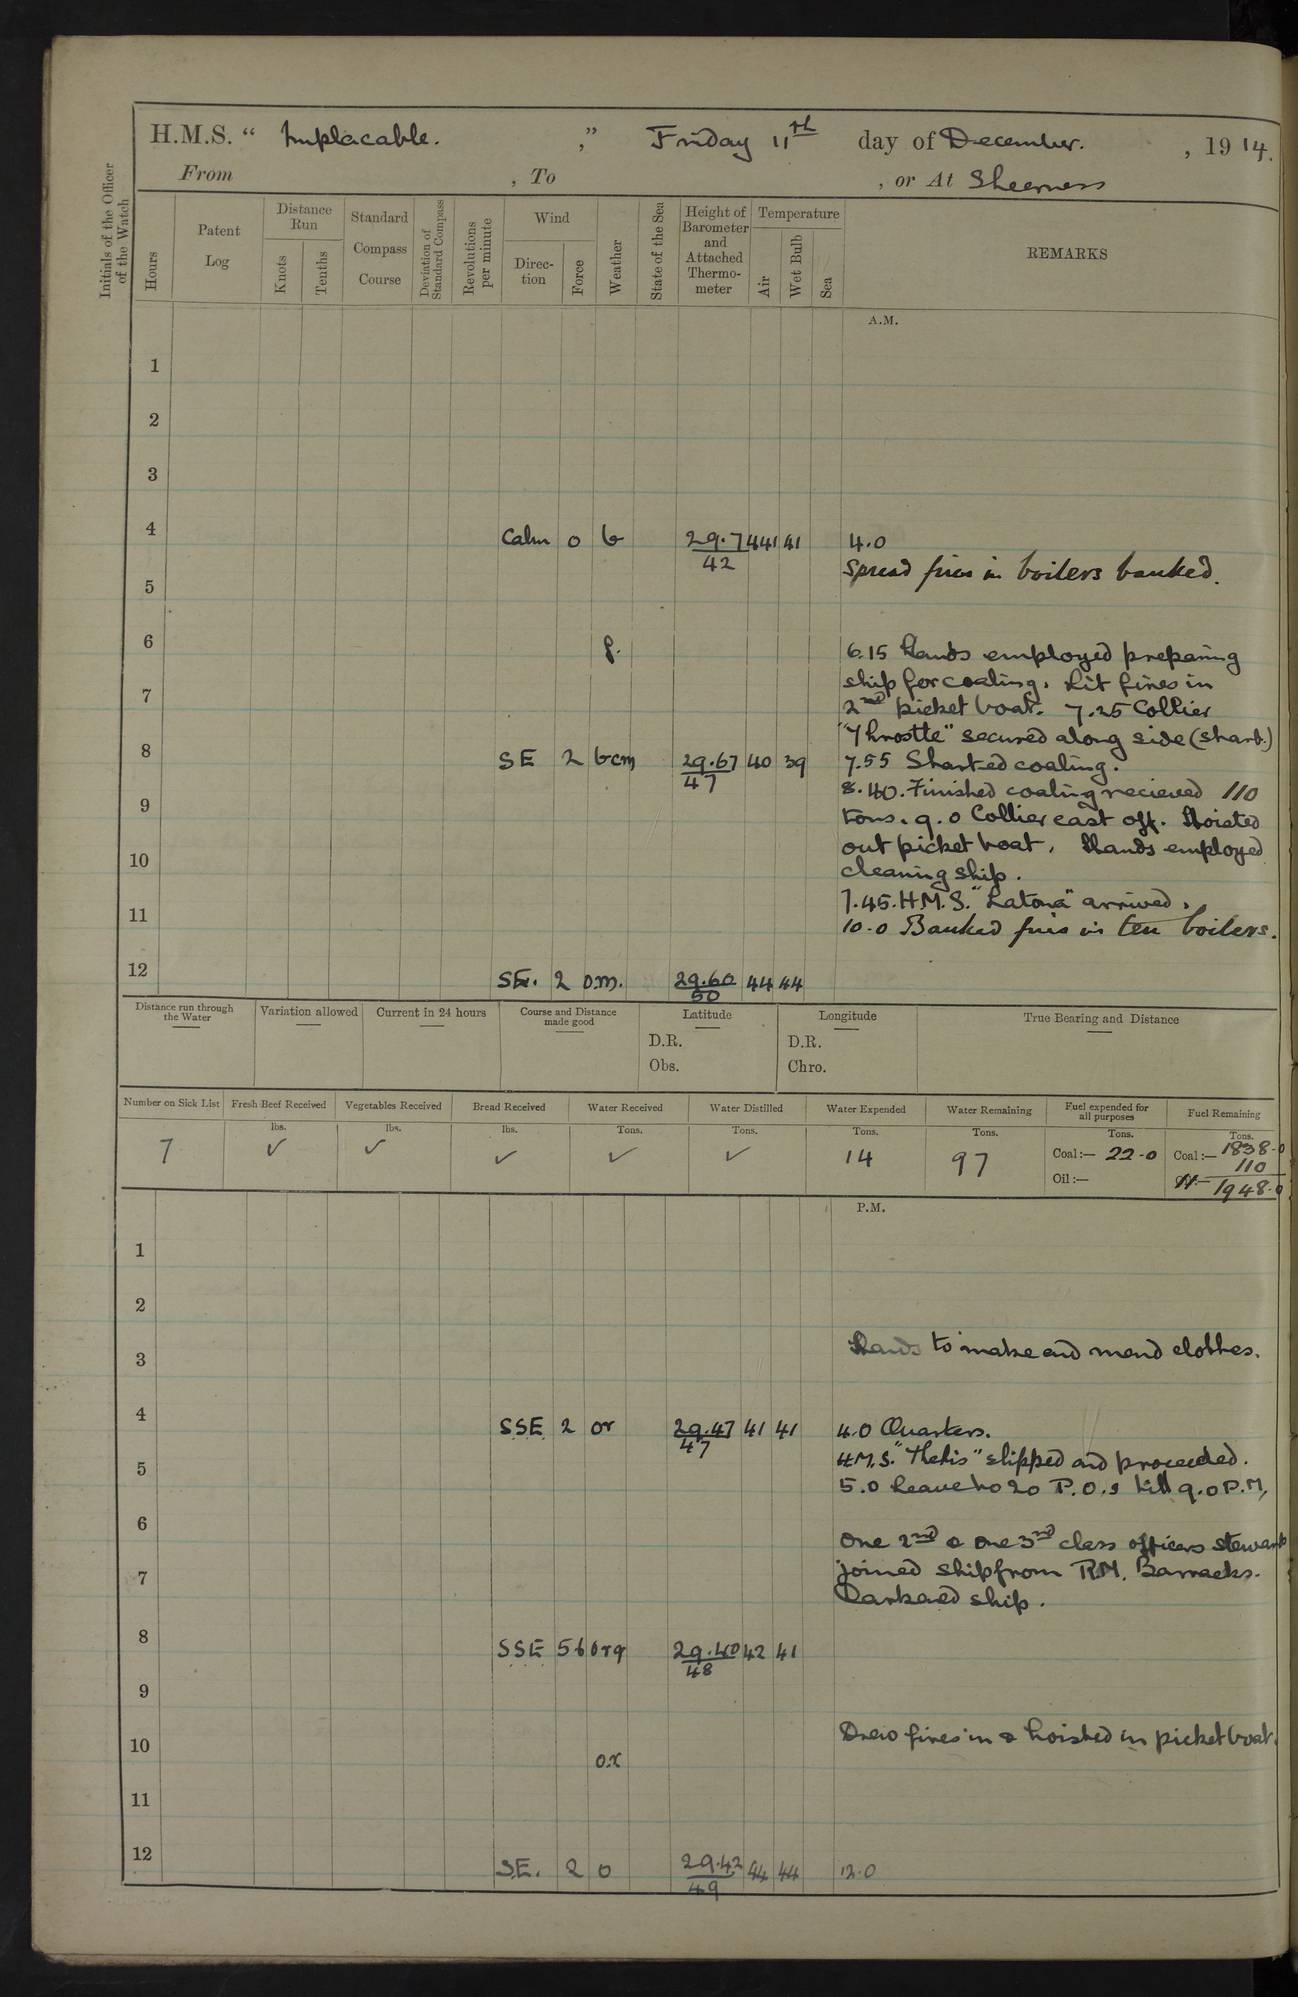 H.M.S. " Implacable. ," Friday 11th day of December. , 1914.
From , To , or At Sheerness
Initials of the Officer of the Watch
Hours
Patent Log
Distance Run
Knots
Tenths
Standard Compass Course
Deviation of Standard Compass
Revolutions per minute
Wind
Direction
Force
Weather
State of the Sea
Height of Barometer and Attached Thermometer
Temperature
Air
Wet Bulb
Sea
REMARKS
A.M.
1
2
3
4 Calm 0 b 29.74 41 41 4.0
42
Spread fires in boilers banked.
5
6 f. 6.15 Hands employed preparing
ship for coaling. Lit fires in
7 2nd picket boat. 7.25 Collier
"Throstle" secured along side (starb.)
8 SE 2 bcm 29.67 40 39 7.55 Started coaling.
47
8.40. Finished coaling recieved 110
9 tons. 9.0 Collier cast off. Hoisted
out picket boat. Hands employed
10 cleaning ship.
7.45. H.M.S. "Latona" arrived.
11 10.0 Banked fires in ten boilers.
12 SE. 2 o.m. 29.60 44 44
50
Distance run through the Water
Variation allowed
Current in 24 hours
Course and Distance made good
Latitude
D.R.
Obs.
Longitude
D.R.
Chro.
True Bearing and Distance
Number on Sick List
7
Fresh Beef Received
lbs.
✓
Vegetables Received
lbs.
✓
Bread Received
lbs.
✓
Water Received
Tons.
✓
Water Distilled
Tons.
✓
Water Expended
Tons.
14
Water Remaining
Tons.
97
Fuel expended for all purposes
Tons.
Coal:— 22.0
Oil:—
Fuel Remaining
Tons.
Coal:— 1838.0
110
1948.0
P.M.
1
2
3 Hands to make and mend clothes.
4 SSE 2 or 29.47 41 41 4.0 Quarters.
47
H.M.S. "Thetis" slipped and proceeded.
5 5.0 Leave to 20 P.O.s till 9.0 P.M,
6 One 2nd & one 3rd class officers stewards
7 joined ship from R.N. Barracks.
Darkened ship.
8 SSE 56 orq 29.40 42 41
48
9
10 Drew fires in & hoisted in picket boat.
o.x
11
12 S.E. 2 o 29.42 44 44 12.0
49